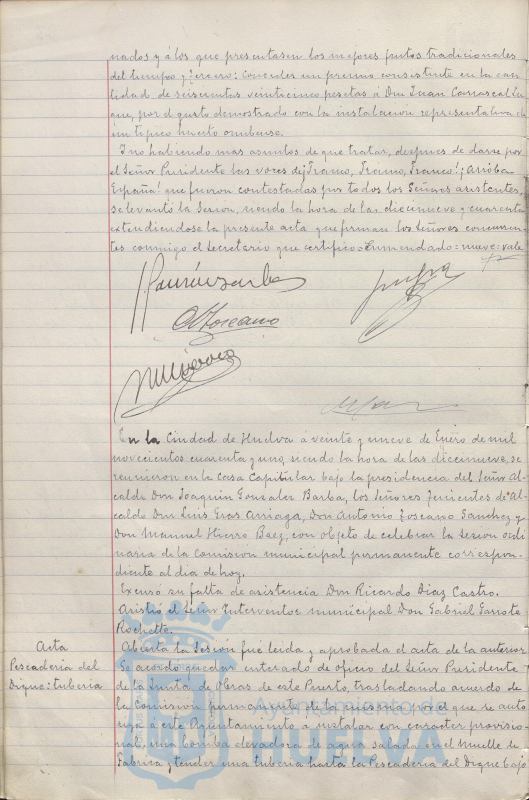 nados y á los que presentasen los mejores frutos tradicionales
del tiempo y tercero: Conceder un premio consistente en la can-
tidad de seiscientas veinticinco pesetas á Don Juan Carrascal Lu
que, por el gusto demostrado con la instalación representativa de
un típico huerto onubense.
Y no habiendo mas asuntos de que tratar, despues de darse por
el Señor Presidente las voces de ¡Franco, Franco, Franco! ¡Arriba
España! que fueron contestadas por todos los Señores asistentes,
se levantó la Sesión, siendo la hora de las diecinueve y cuarenta
extendiendose la presente acta que firman los Señores concurren-
tes conmigo el Secretario que certifico = Enmendado = nueve: vale
En la Ciudad de Huelva á veinte y nueve de Enero de mil
novecientos cuarenta y uno, siendo la hora de las diecinueve, se
reunieron en la Casa Capitular bajo la presidencia del Señor Al-
calde Don Joaquin Gonzalez Barba, los Señores Tenientes de Al-
calde Don Luis Gras Arriaga, Don Antonio Toscano Sanchez y
Don Manuel Hierro Baez, con objeto de celebrar la Sesión ordi
naria de la Comisión municipal permanente correspon-
diente al dia de hoy.
Excusó su falta de asistencia Don Ricardo Diaz Castro.
Asistió el Señor Interventor municipal Don Gabriel Garrote
Rochette.
Acta
Abierta la Sesión fué leida y aprobada el acta de la anterior
Pescaderia del
Se acordó quedar enterado de oficio del Señor Presidente
Dique: tuberia
de la Junta de Obras de este Puerto, trasladando acuerdo de
la Comisión permanente de la misma en el que se auto
riza á este Ayuntamiento á instalar con caracter provisio-
nal, una bomba elevadora de agua salada en el muelle de
Fabrica y tender una tuberia hasta la Pescaderia del Dique bajo
Ayuntamiento de
HUELVA